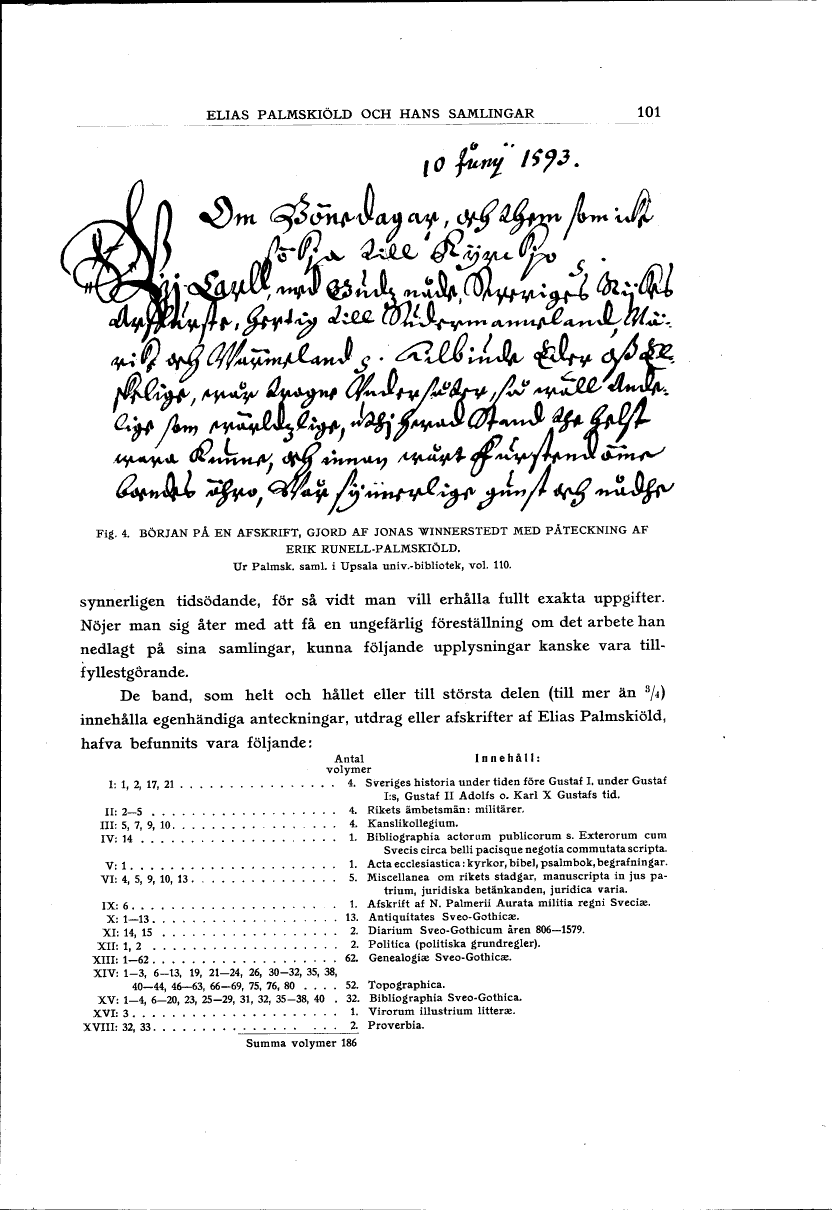 ELIAS PALMSKIÖLD OCH HANS SAMLINGAR 101
10 Junij 1593.
Om Bönedagar, och them som icke
sökia till Kyrckio
Wij Carll, med Gudz nåde, Sweriges Rijkes
Arffurste, Hertig till Südermanneland, Nä-
rike och Wärmeland
skelige, wåre trogne Undersåter, så wäll Ande-
lige som wärldzlige, uthj hwad Stand the helst
wara kunne, och innan wårt Furstendöme
boendes ähro, Wår synnerlige gunst och nådhe
Fig. 4. BÖRJAN PÅ EN AFSKRIFT, GJORD AF JONAS WINNERSTEDT MED PÅTECKNING AF
ERIK RUNELL-PALMSKIÖLD.
Ur Palmsk. saml. i Upsala univ.-bibliotek, vol. 110.
synnerligen tidsödande, för så vidt man vill erhålla fullt exakta uppgifter.
Nöjer man sig åter med att få en ungefärlig föreställning om det arbete han
nedlagt på sina samlingar, kunna följande upplysningar kanske vara till-
fyllestgörande.
De band, som helt och hållet eller till största delen (till mer än 3/4)
innehålla egenhändiga anteckningar, utdrag eller afskrifter af Elias Palmskiöld,
hafva befunnits vara följande:
Antal Innehåll:
volymer
I: 1, 2, 17, 21 . . . . . . . . . . . . . . . . 4. Sveriges historia under tiden före Gustaf I, under Gustaf
I:s, Gustaf II Adolfs o. Karl X Gustafs tid.
II: 2—5 . . . . . . . . . . . . . . . . . . . 4. Rikets ämbetsmän: militärer.
III: 5, 7, 9, 10. . . . . . . . . . . . . . . . . 4. Kanslikollegium.
IV: 14 . . . . . . . . . . . . . . . . . . . . 1. Bibliographia actorum publicorum s. Exterorum cum
Svecis circa belli pacisque negotia commutata scripta.
V: 1. . . . . . . . . . . . . . . . . . . . . 1. Acta ecclesiastica: kyrkor, bibel, psalmbok, begrafningar.
VI: 4, 5, 9, 10, 13. . . . . . . . . . . . . . . 5. Miscellanea om rikets stadgar, manuscripta in jus pa-
trium, juridiska betänkanden, juridica varia.
IX: 6. . . . . . . . . . . . . . . . . . . . . 1. Afskrift af N. Palmerii Aurata militia regni Sveciæ.
X: 1—13. . . . . . . . . . . . . . . . . . . 13. Antiquitates Sveo-Gothicæ.
XI: 14, 15 . . . . . . . . . . . . . . . . . . 2. Diarium Sveo-Gothicum åren 806—1579.
XII: 1, 2 . . . . . . . . . . . . . . . . . . . 2. Politica (politiska grundregler).
XIII: 1—62 . . . . . . . . . . . . . . . . . . . 62. Genealogiæ Sveo-Gothicæ.
XIV: 1—3, 6—13, 19, 21—24, 26, 30—32, 35, 38,
40—44, 46—63, 66—69, 75, 76, 80 . . . . 52. Topographica.
XV: 1—4, 6—20, 23, 25—29, 31, 32, 35—38, 40 . 32. Bibliographia Sveo-Gothica.
XVI: 3 . . . . . . . . . . . . . . . . . . . . . 1. Virorum illustrium litteræ.
XVIII: 32, 33. . . . . . . . . . . . . . . . . . 2. Proverbia.
Summa volymer 186